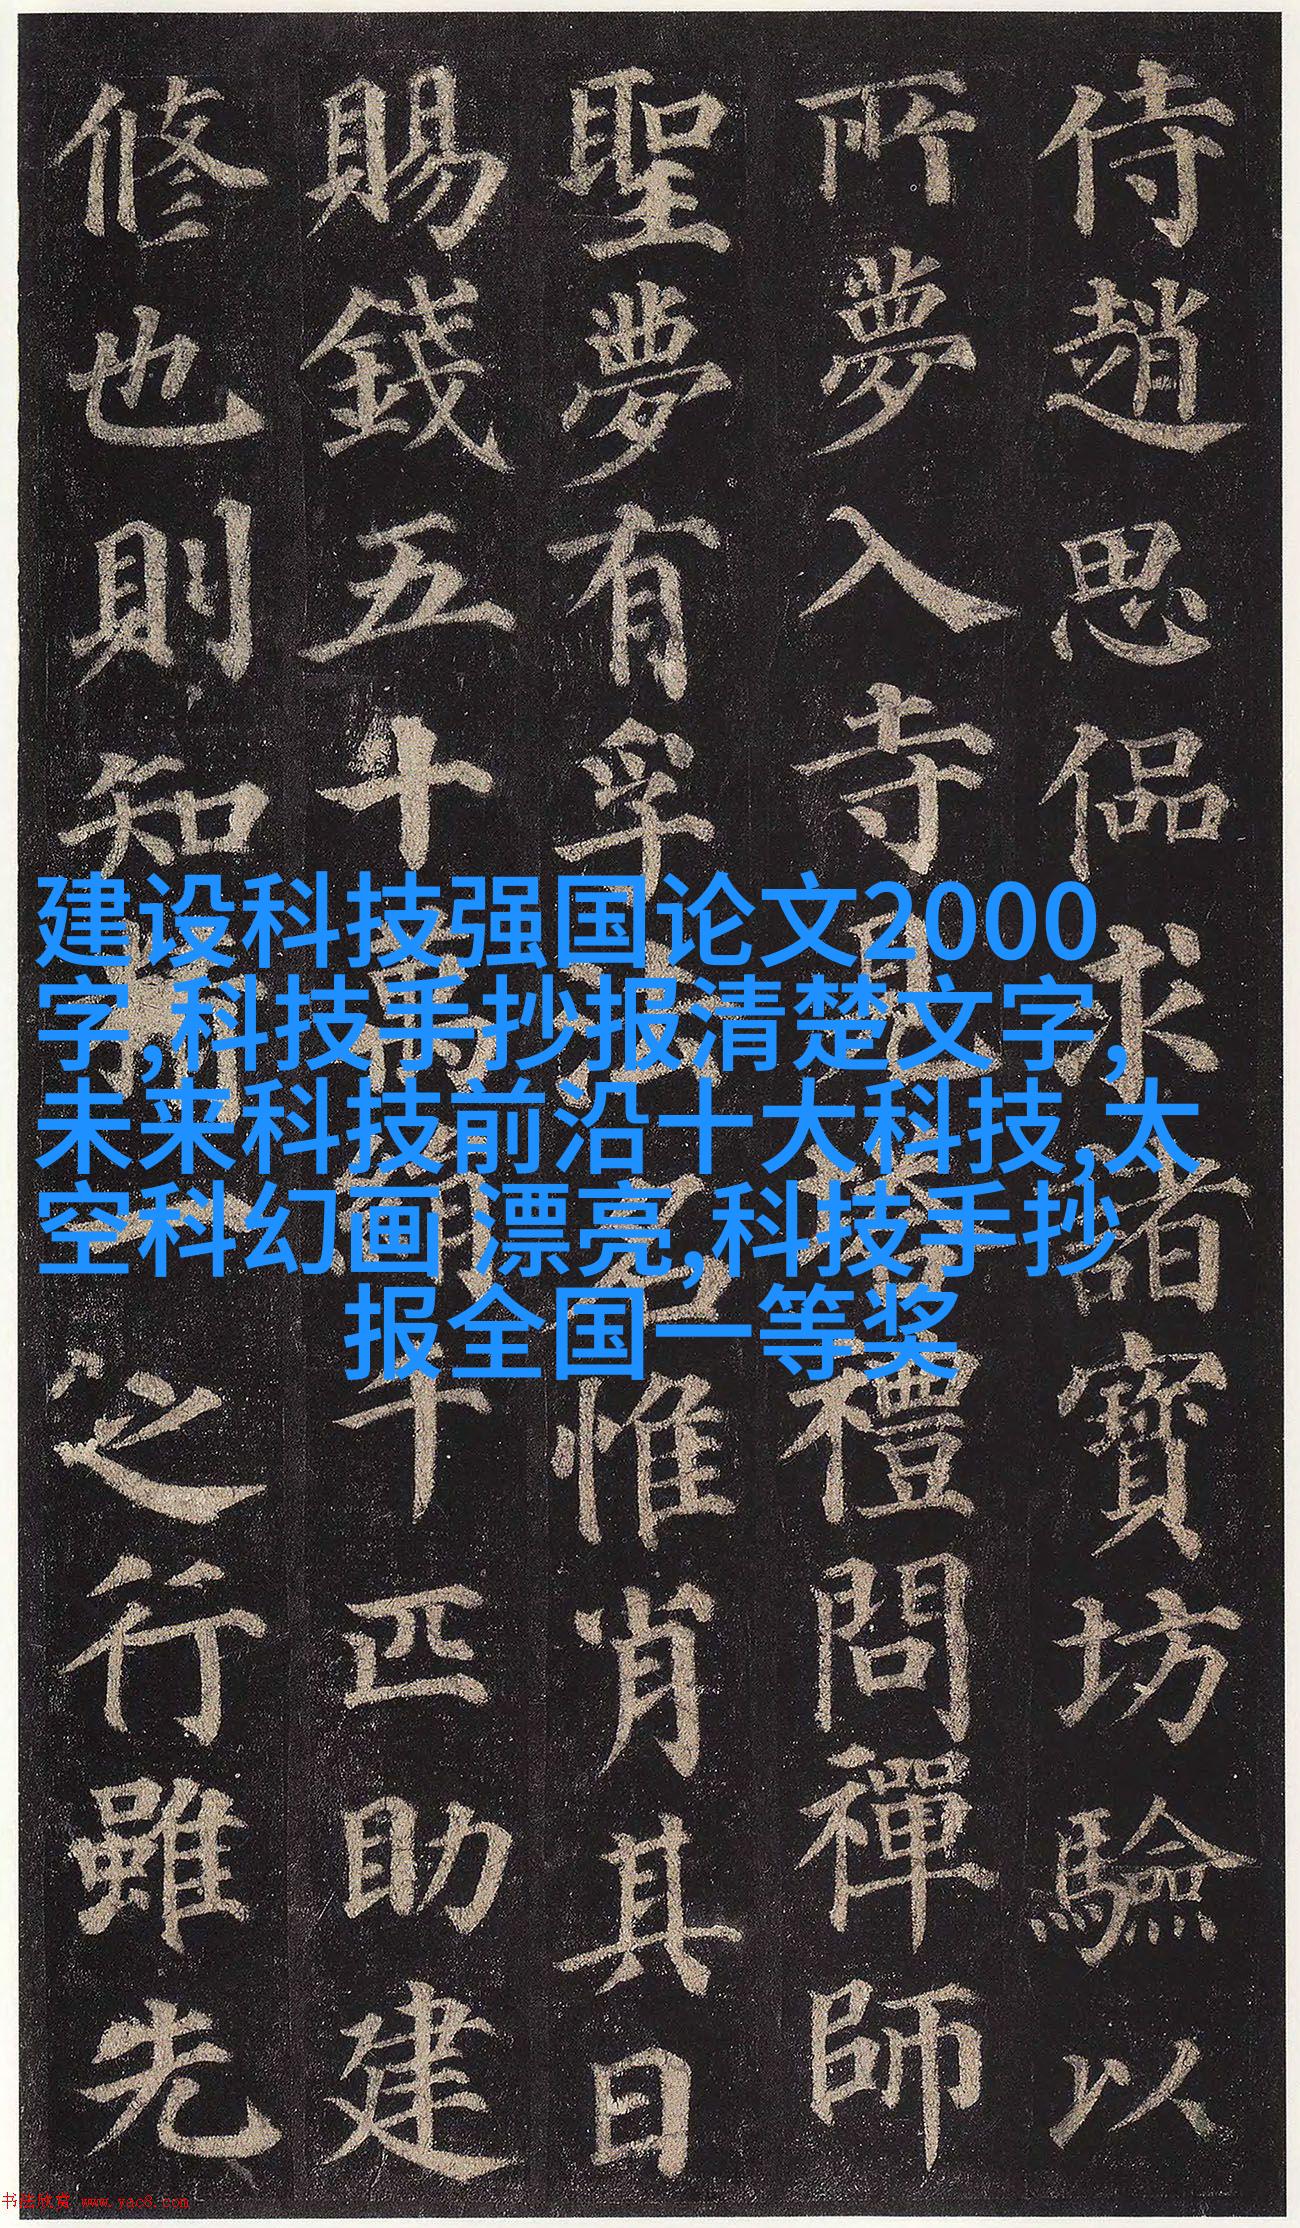 侍趙思偘求諸寶坊驗以
所夢入寺見塔禮問禪師
聖夢有孚法名惟肖其日
賜錢五十萬絹千匹助建
修也則知精一之行雖先
建设科技强国论文2000
字,科技手抄报清楚文字,
未来科技前沿十大科技,太
空科幻画 漂亮,科技手抄
报全国一等奖
书法欣赏 www.yac8.com